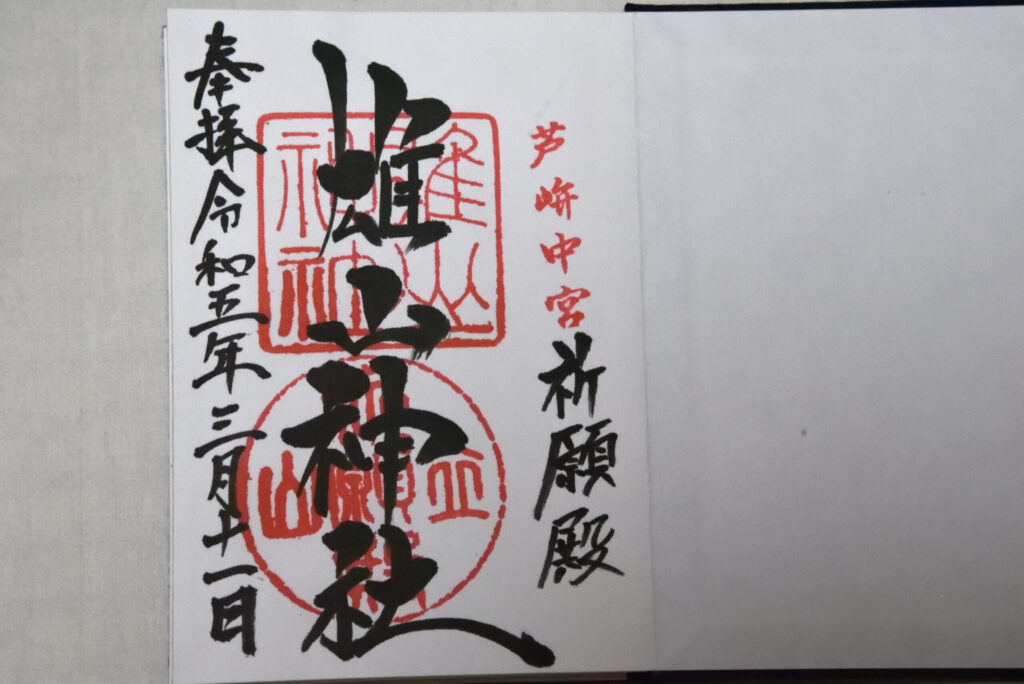 芦峅中宮祈願殿
雄山神社
奉拝令和五年三月十一日
雄山神社
立山